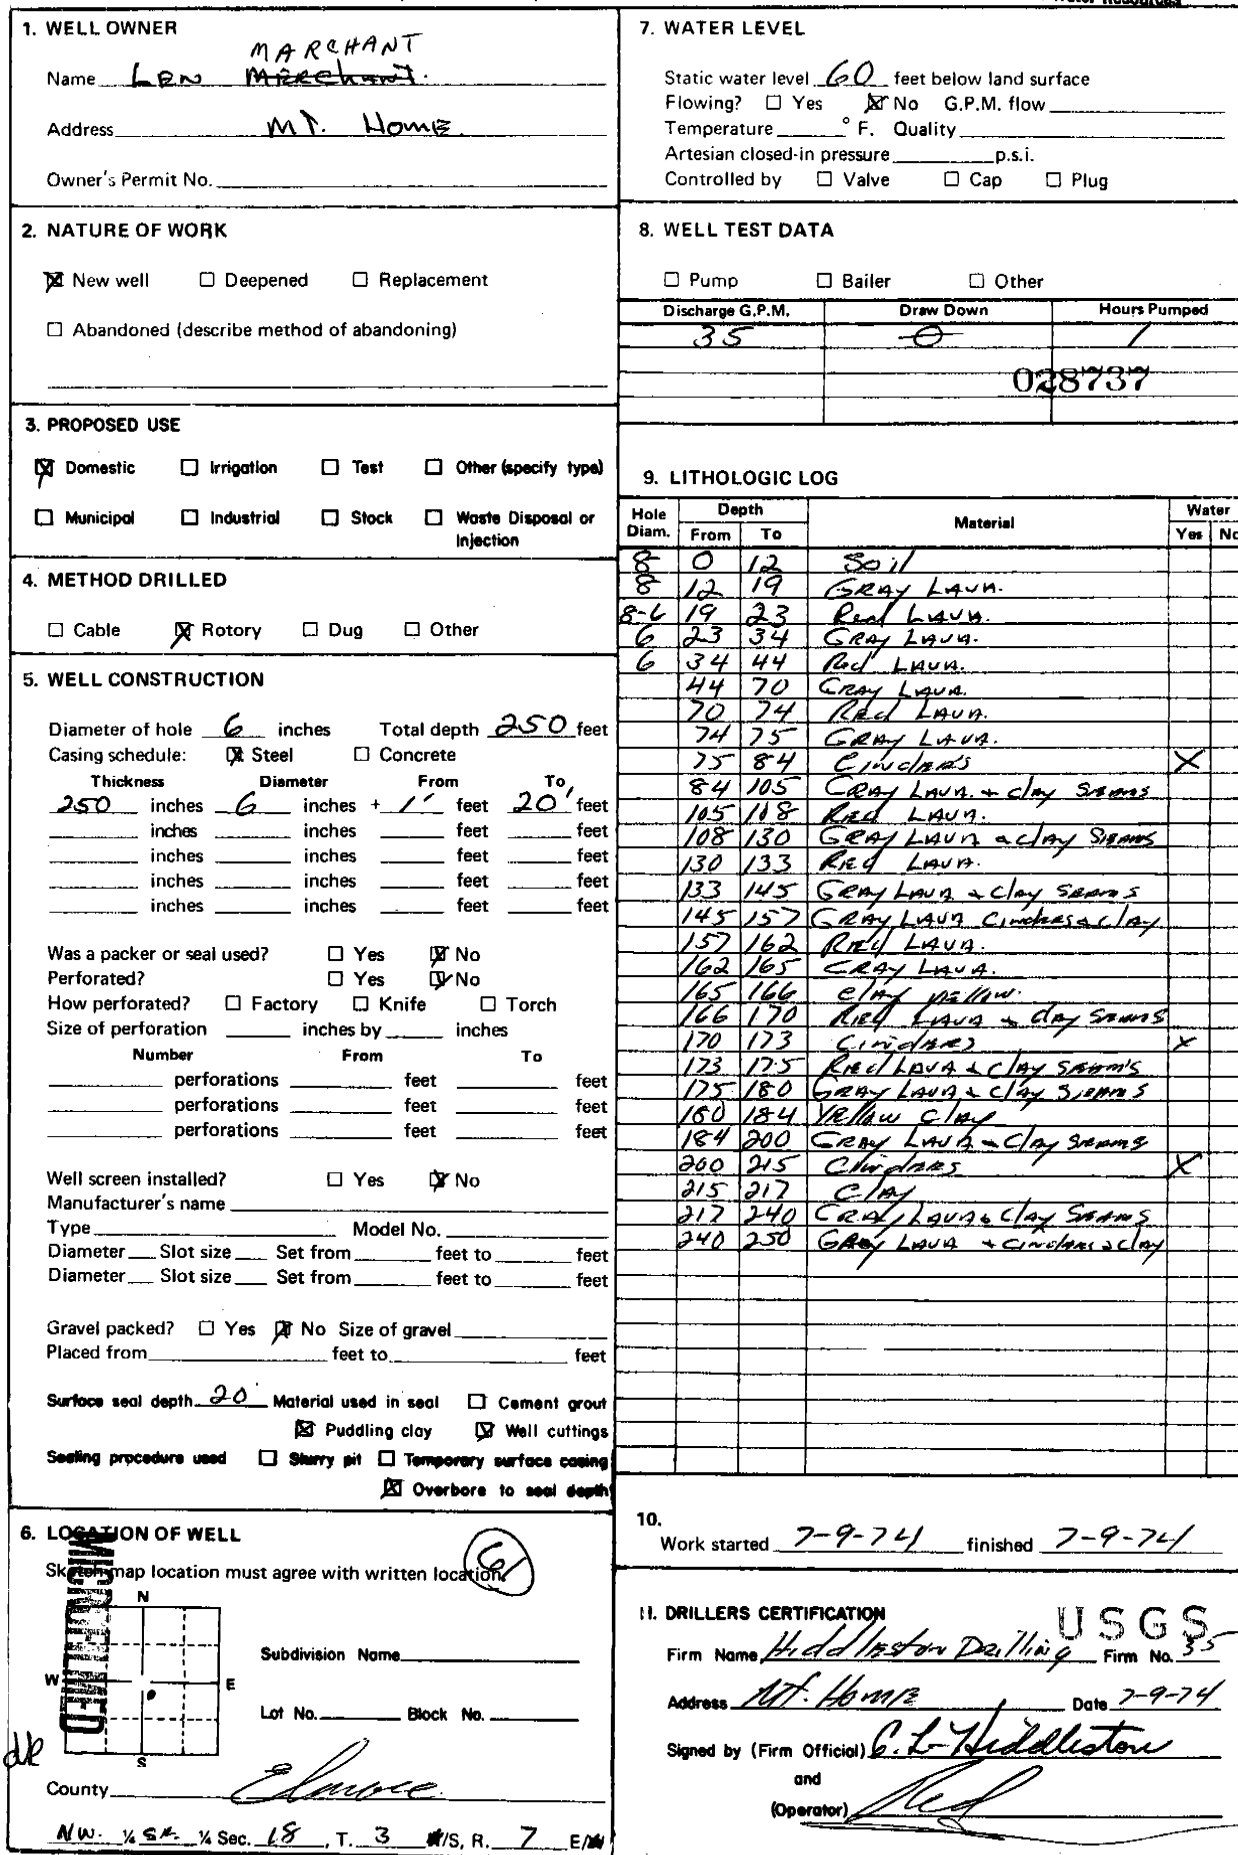 1. WELL OWNER
MARCHANT
Name LEN MERCHANT.
Address MT. HOME
Owner's Permit No.
2. NATURE OF WORK
☒ New well ☐ Deepened ☐ Replacement
☐ Abandoned (describe method of abandoning)
3. PROPOSED USE
☒ Domestic ☐ Irrigation ☐ Test ☐ Other (specify type)
☐ Municipal ☐ Industrial ☐ Stock ☐ Waste Disposal or
Injection
4. METHOD DRILLED
☐ Cable ☒ Rotory ☐ Dug ☐ Other
5. WELL CONSTRUCTION
Diameter of hole 6 inches Total depth 250 feet
Casing schedule: ☒ Steel ☐ Concrete
Thickness Diameter From To
250 inches 6 inches + 1' feet 20' feet
inches inches feet feet
inches inches feet feet
inches inches feet feet
inches inches feet feet
Was a packer or seal used? ☐ Yes ☒ No
Perforated? ☐ Yes ☒ No
How perforated? ☐ Factory ☐ Knife ☐ Torch
Size of perforation inches by inches
Number From To
perforations feet feet
perforations feet feet
perforations feet feet
Well screen installed? ☐ Yes ☒ No
Manufacturer's name
Type Model No.
Diameter Slot size Set from feet to feet
Diameter Slot size Set from feet to feet
Gravel packed? ☐ Yes ☒ No Size of gravel
Placed from feet to feet
Surface seal depth 20' Material used in seal ☐ Cement grout
☒ Puddling clay ☒ Well cuttings
Sealing procedure used ☐ Slurry pit ☐ Temporary surface casing
☒ Overbore to seal depth
6. LOCATION OF WELL
Sketch map location must agree with written location.
MICROFILMED
N
W E
S
Subdivision Name
Lot No. Block No.
County Elmore
NW. ¼ SE. ¼ Sec. 18, T. 3 N/S, R. 7 E/W
Water Resources
7. WATER LEVEL
Static water level 60 feet below land surface
Flowing? ☐ Yes ☒ No G.P.M. flow
Temperature ° F. Quality
Artesian closed-in pressure p.s.i.
Controlled by ☐ Valve ☐ Cap ☐ Plug
8. WELL TEST DATA
☐ Pump ☐ Bailer ☐ Other
Discharge G.P.M. Draw Down Hours Pumped
35 0 1
028737
9. LITHOLOGIC LOG
Hole Diam. Depth From To Material Water Yes No
8 0 12 Soil
8 12 19 GRAY LAVA.
8-6 19 23 Red LAVA.
6 23 34 GRAY LAVA.
6 34 44 Red LAVA.
44 70 GRAY LAVA.
70 74 RED LAVA.
74 75 GRAY LAVA.
75 84 Cinders X
84 105 GRAY LAVA. & Clay SEAMS
105 108 RED LAVA.
108 130 GRAY LAVA & Clay SEAMS
130 133 RED LAVA.
133 145 GRAY LAVA & Clay SEAMS
145 157 GRAY LAVA Cinders & Clay
157 162 RED LAVA.
162 165 GRAY LAVA.
165 166 Clay yellow.
166 170 RED LAVA & Clay SEAMS
170 173 Cinders X
173 175 Red LAVA & Clay SEAM'S
175 180 GRAY LAVA & Clay SEAMS
180 184 YELLOW Clay
184 200 GRAY LAVA & Clay SEAMS
200 215 Cinders X
215 217 Clay
217 240 GRAY LAVA & Clay SEAMS
240 250 GRAY LAVA & Cinders & Clay
10.
Work started 7-9-74 finished 7-9-74
11. DRILLERS CERTIFICATION
USGS
Firm Name Hiddleston Drilling Firm No. 35
Address Mt. Home Date 7-9-74
Signed by (Firm Official) C. L. Hiddleston
and
(Operator) Red